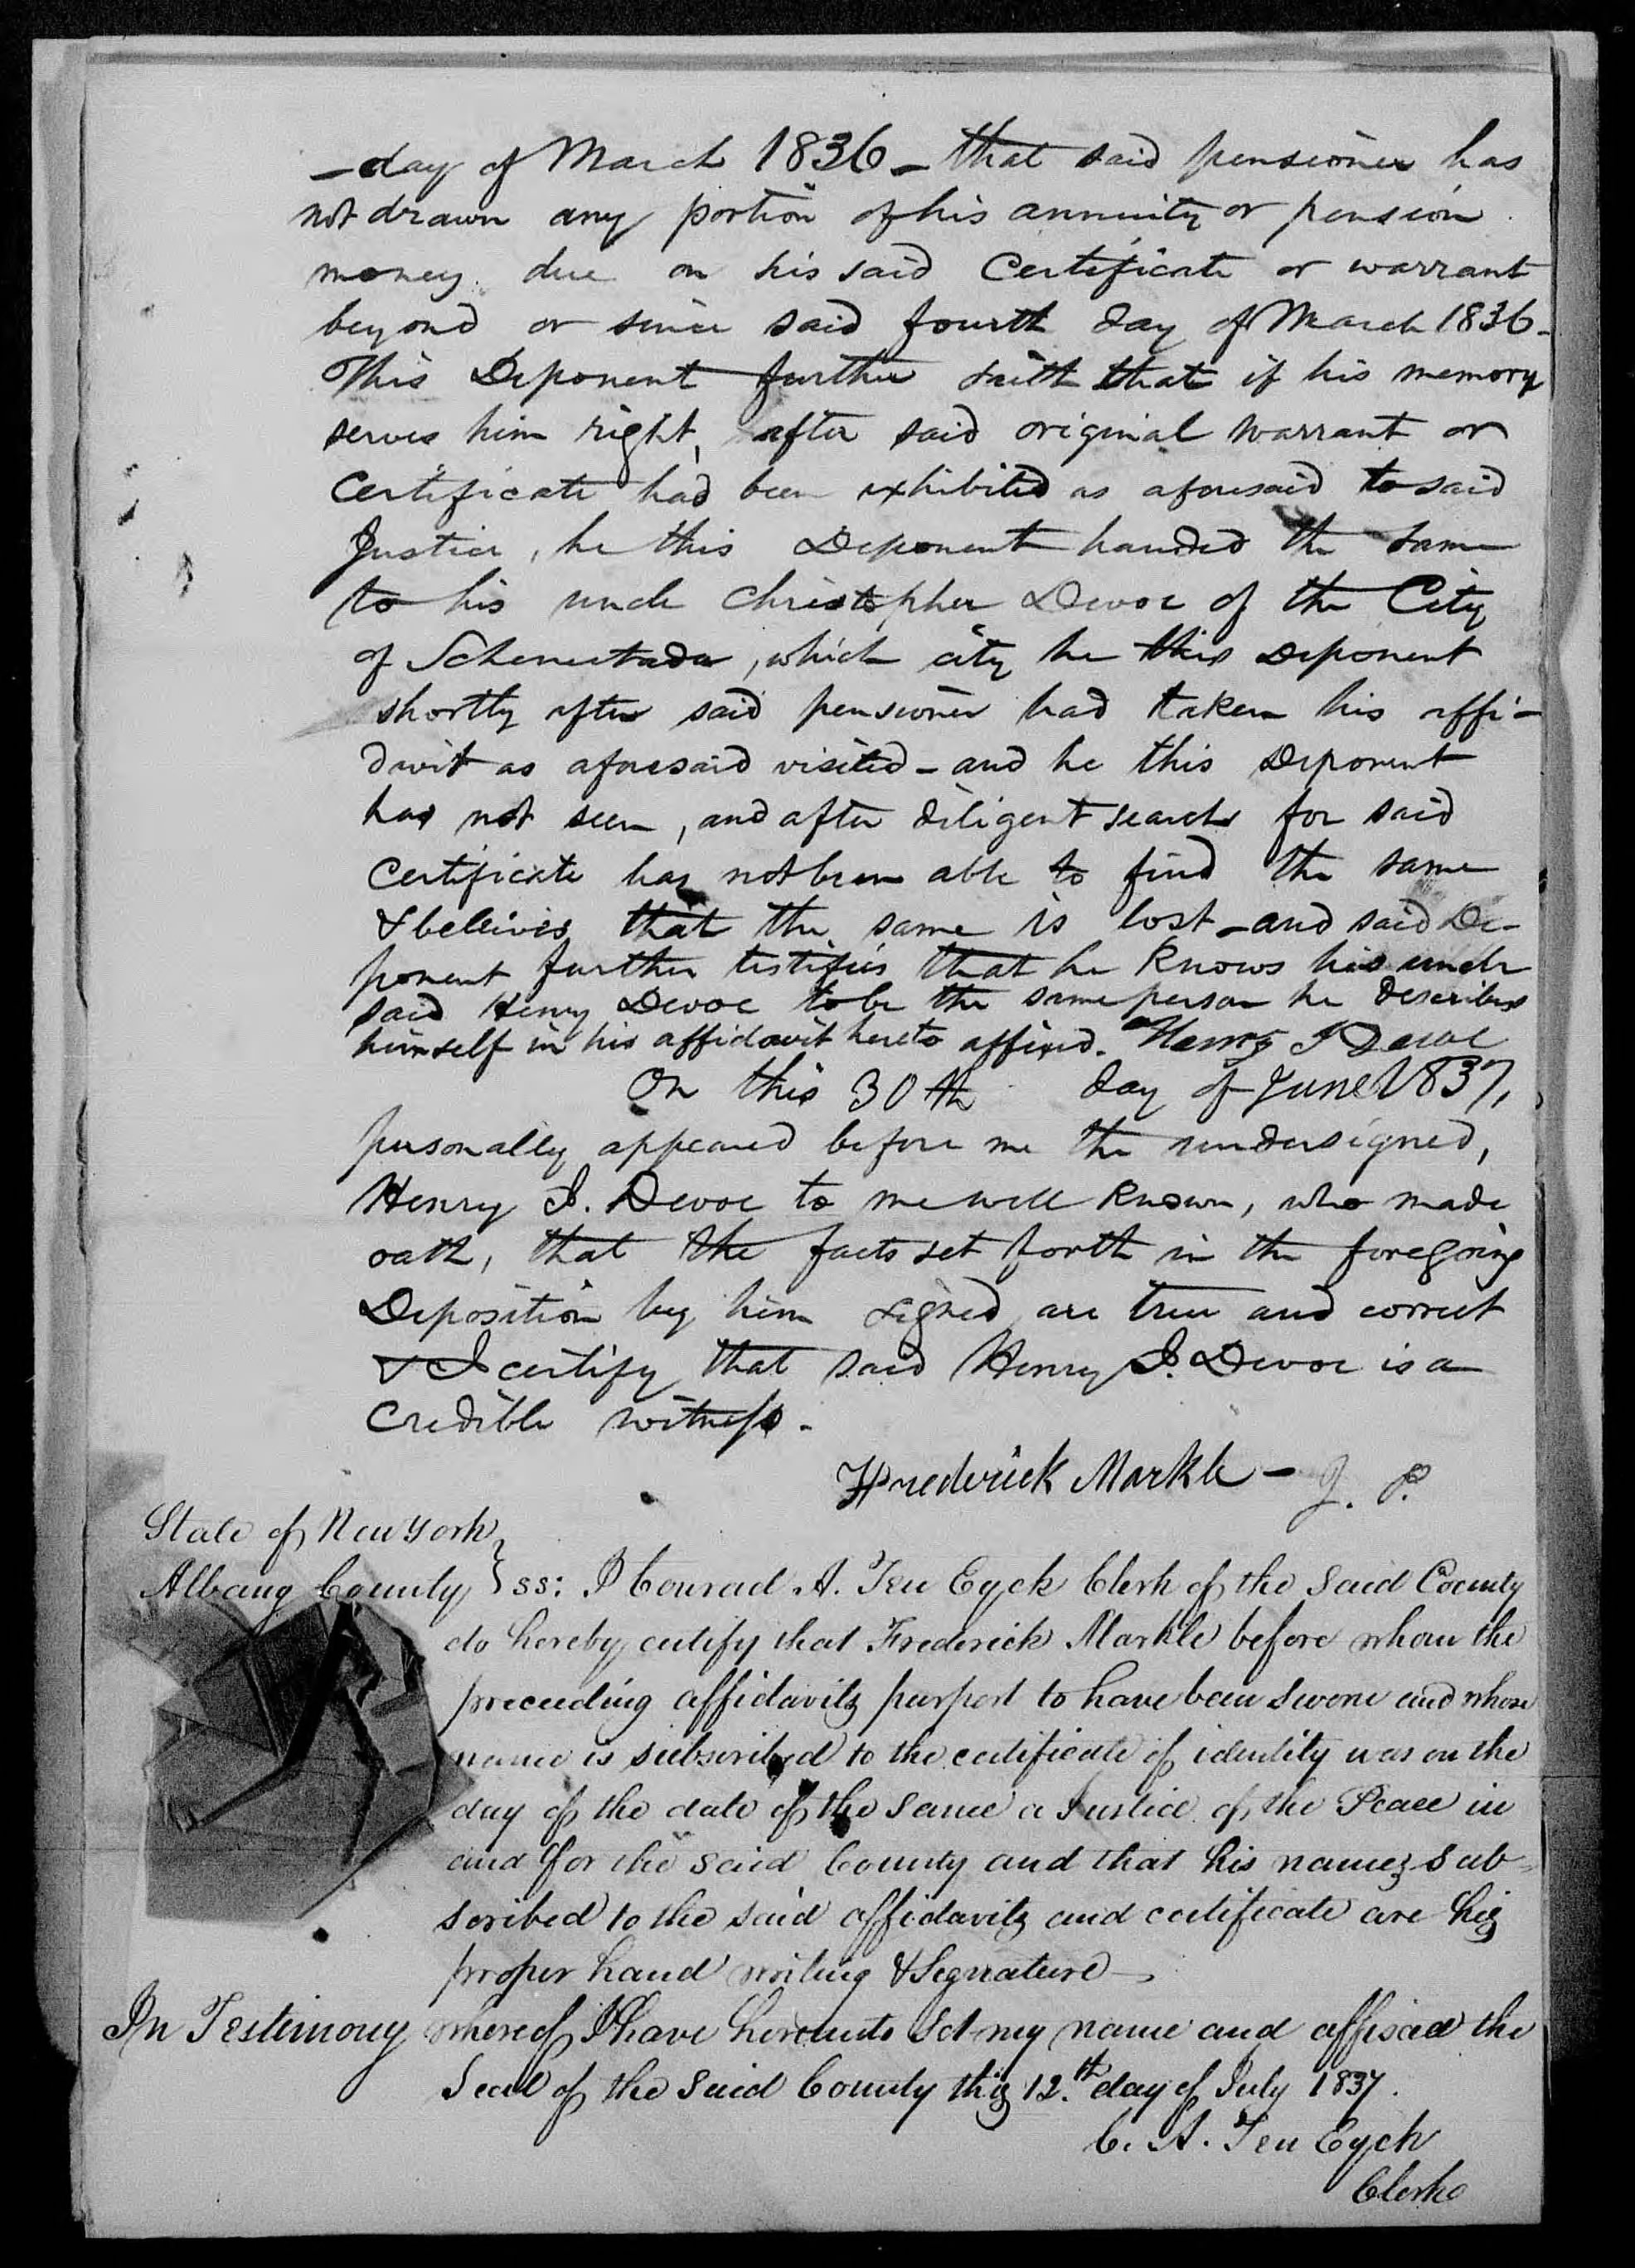 - day of March 1836 - that said pensioner has
not drawn any portion of his annuity or pension
money due on his said Certificate or warrant
beyond or since said fourth day of March 1836 -
This Deponent further saith that if his memory
serves him right, after said original warrant or
Certificate had been exhibited as aforesaid to said
Justice, he this Deponent handed the same
to his uncle Christopher Devoe of the City
of Schenectada, which city he this Deponent
shortly after said pensioner had taken his affi-
davit as aforesaid visited - and he this Deponent
has not seen, and after diligent search for said
Certificate has not been able to find the same
& believes that the same is lost - and said De-
ponent further testifies that he knows his uncle
said Henry Devoe to be the same person he describes
himself in his affidavit hereto affixed. Henry I Devoe
On this 30th day of June 1837,
personally appeared before me the undersigned,
Henry I. Devoe to me well known, who made
oath, that the facts set forth in the foregoing
Deposition by him signed are true and correct
& I certify that said Henry I. Devoe is a
Credible witness -
Frederick Markle - J. P.
State of New York
Albany County } ss: I Conrad A. Ten Eyck Clerk of the said County
do hereby certify that Frederick Markle before whom the
preceeding affidavits purport to have been sworn and whose
name is subscribed to the certificate of identity was on the
day of the date of the same a Justice of the Peace in
and for the said County and that his names sub-
scribed to the said affidavits and certificate are his
proper hand writing & Signature -
In Testimony whereof I have hereunto set my name and affixed the
Seal of the said County this 12.th day of July 1837.
C. A. Ten Eyck
Clerk